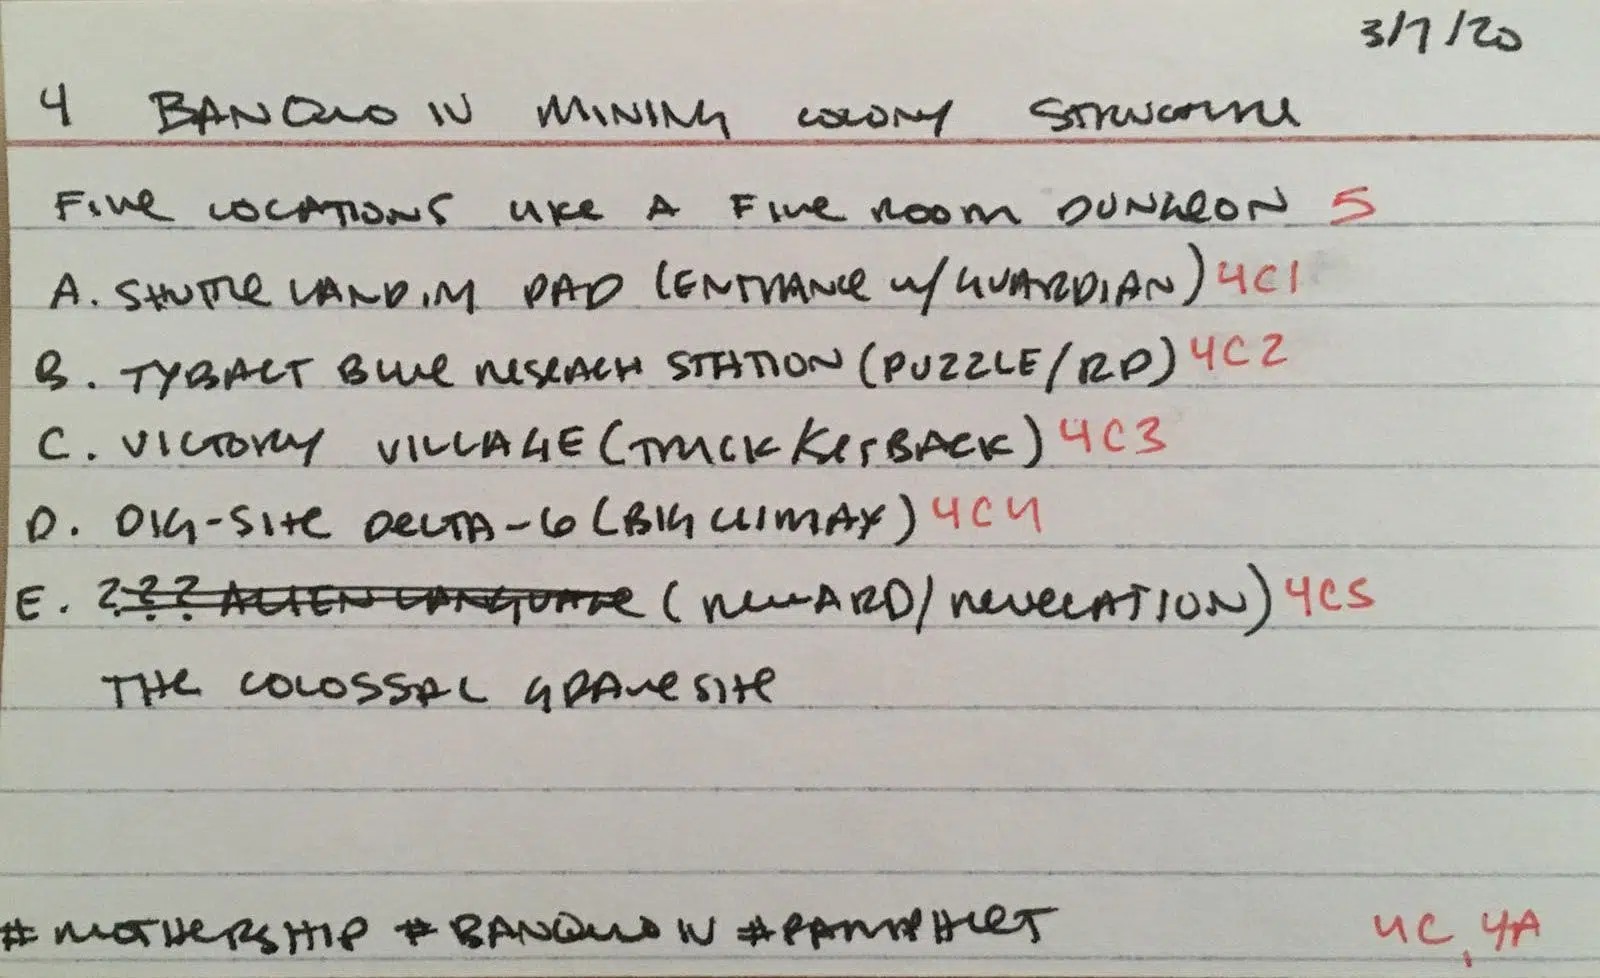 3/7/20
4 BANQUO IV MINING COLONY STRUCTURE
FIVE LOCATIONS LIKE A FIVE ROOM DUNGEON 5
A. SHUTTLE LANDING PAD (ENTRANCE w/ GUARDIAN) 4C1
B. TYBALT BLUE RESEACH STATION (PUZZLE/RP) 4C2
C. VICTORY VILLAGE (TRICK/SETBACK) 4C3
D. DIG-SITE DELTA-6 (BIG CLIMAX) 4C4
E. ??? ALIEN LANGUAGE (REWARD/REVELATION) 4C5
THE COLOSSAL GRAVESITE
#MOTHERSHIP #BANQUO IV #PAMPHLET
4C, 4A